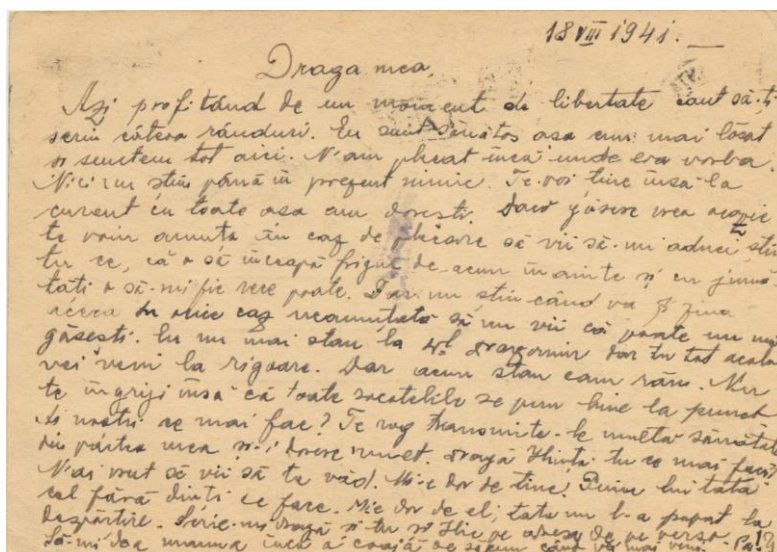 18 VIII 1941.
Draga mea,
Azi profitând de un moment de libertate caut să-ți
scriu câteva rânduri. Eu sunt sănătos așa cum m-ai lăsat
și suntem tot aici. N'am plecat încă unde era vorba.
Nici nu știu până în prezent nimic. Te voi ține însă la
curent cu toate așa cum dorești. Dacă găsesc vreo ocazie
te voiu anunța în caz de plecare să vii să-mi aduci știi
tu ce, că o să înceapă frigul de acum înainte și cu jumă-
tăți o să-mi fie rece poate. Dar nu știu când va fi ziua
aceea. În orice caz neanunțată să nu vii că poate nu mă
găsești. Eu nu mai stau la Dragomir dar tu tot acolo
vei veni la rigoare. Dar acum stau cam rău. Nu
te îngriji însă că toate socotelile se pun bine la punct.
Ai noștri ce mai fac? Te rog transmite-le multă sănătate
din partea mea și-i doresc mult. Dragă tu ce mai faci?
N'ai vrut să vii să te văd. Mi-e dor de tine. Puiu lui tata
cel fără dinți ce face. Mi-e dor de el; tata nu l-a pupat la
despărțire. Scrie-mi dragă și tu pe adresa de pe verso.
Să-mi dea mama încă o coajă